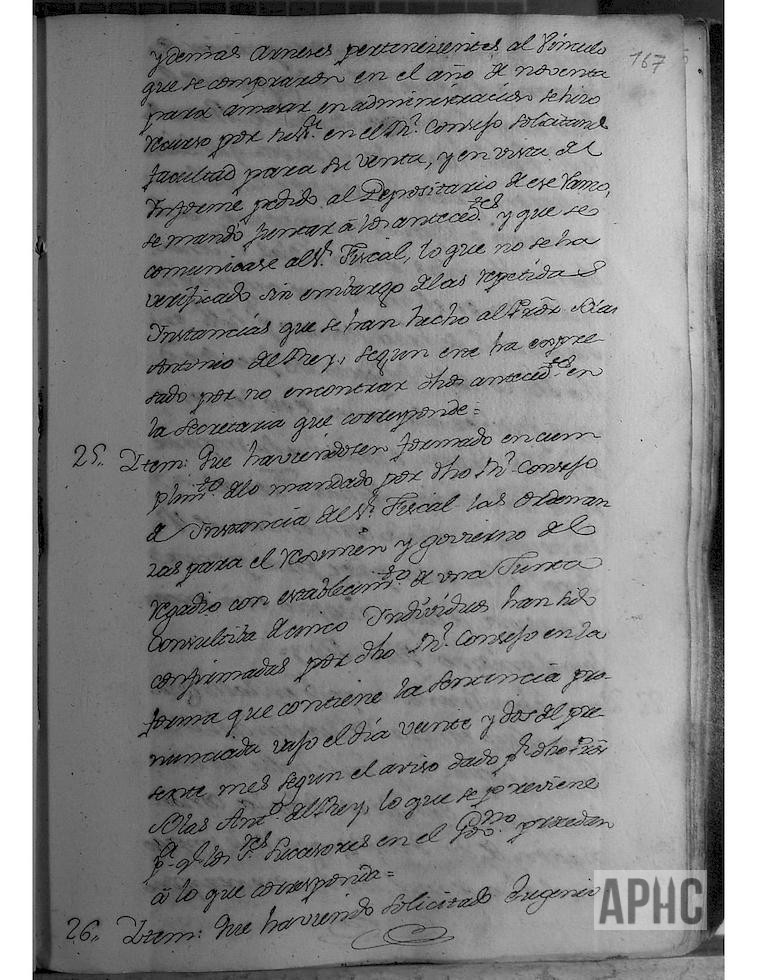 167
y demas Arneses pertenezientes al Vinculo
que se compraron en el año de noventa
para amasar en administracion se hizo
recurso por en el Rl. Consejo solicitand
facultad para su venta, y en vista del
Informe pedido al Depositario de ese Ramo,
se mandó juntar à los anteced.tes y que se
comunicase al Sr. Fiscal, lo que no se ha
verificado sin embargo de las repetidas
Instancias que se han hecho al Prôr. Blas
Antonio del Rey, segun este ha expre
sado por no encontrar dhos anteced.tes en
la Secretaria que corresponde=
25,, Item: Que haviendosen formado en cum
plim.to de lo mandado por dho Rl. Consejo
a Instancia del Sr. Fiscal las Ordenan
zas para el Regimen y govierno del
regadio con establecim.to de vna Junta
Consultiba de cinco Individuos han sido
confirmadas por dho Rl. Consejo en la
forma que contiene la Sentencia pro-
nunciada vajo el dia veinte y dos del pre
sente mes segun el aviso dado pr. dho Prôr
Blas Ant.o del Rey, lo que se previene
pa. qe. los Sres Sucesores en el Govno. procedan
â lo que corresponda=
26,, Item: Que haviendo solicitado Eugenio
APHC